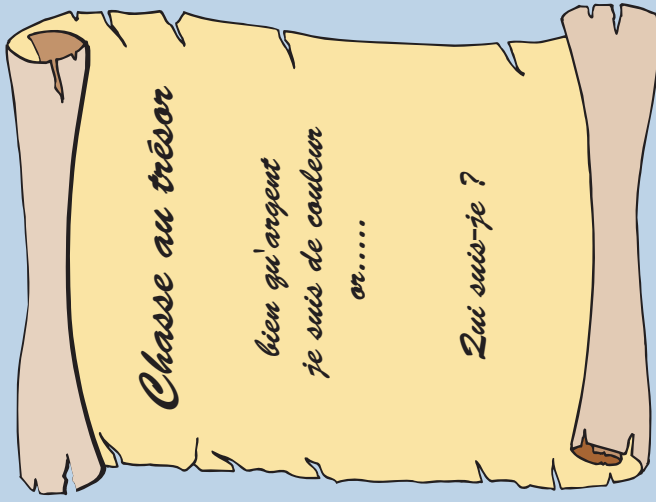 Chasse au trésor
bien qu'argent
je suis de couleur
or.....
Qui suis-je ?